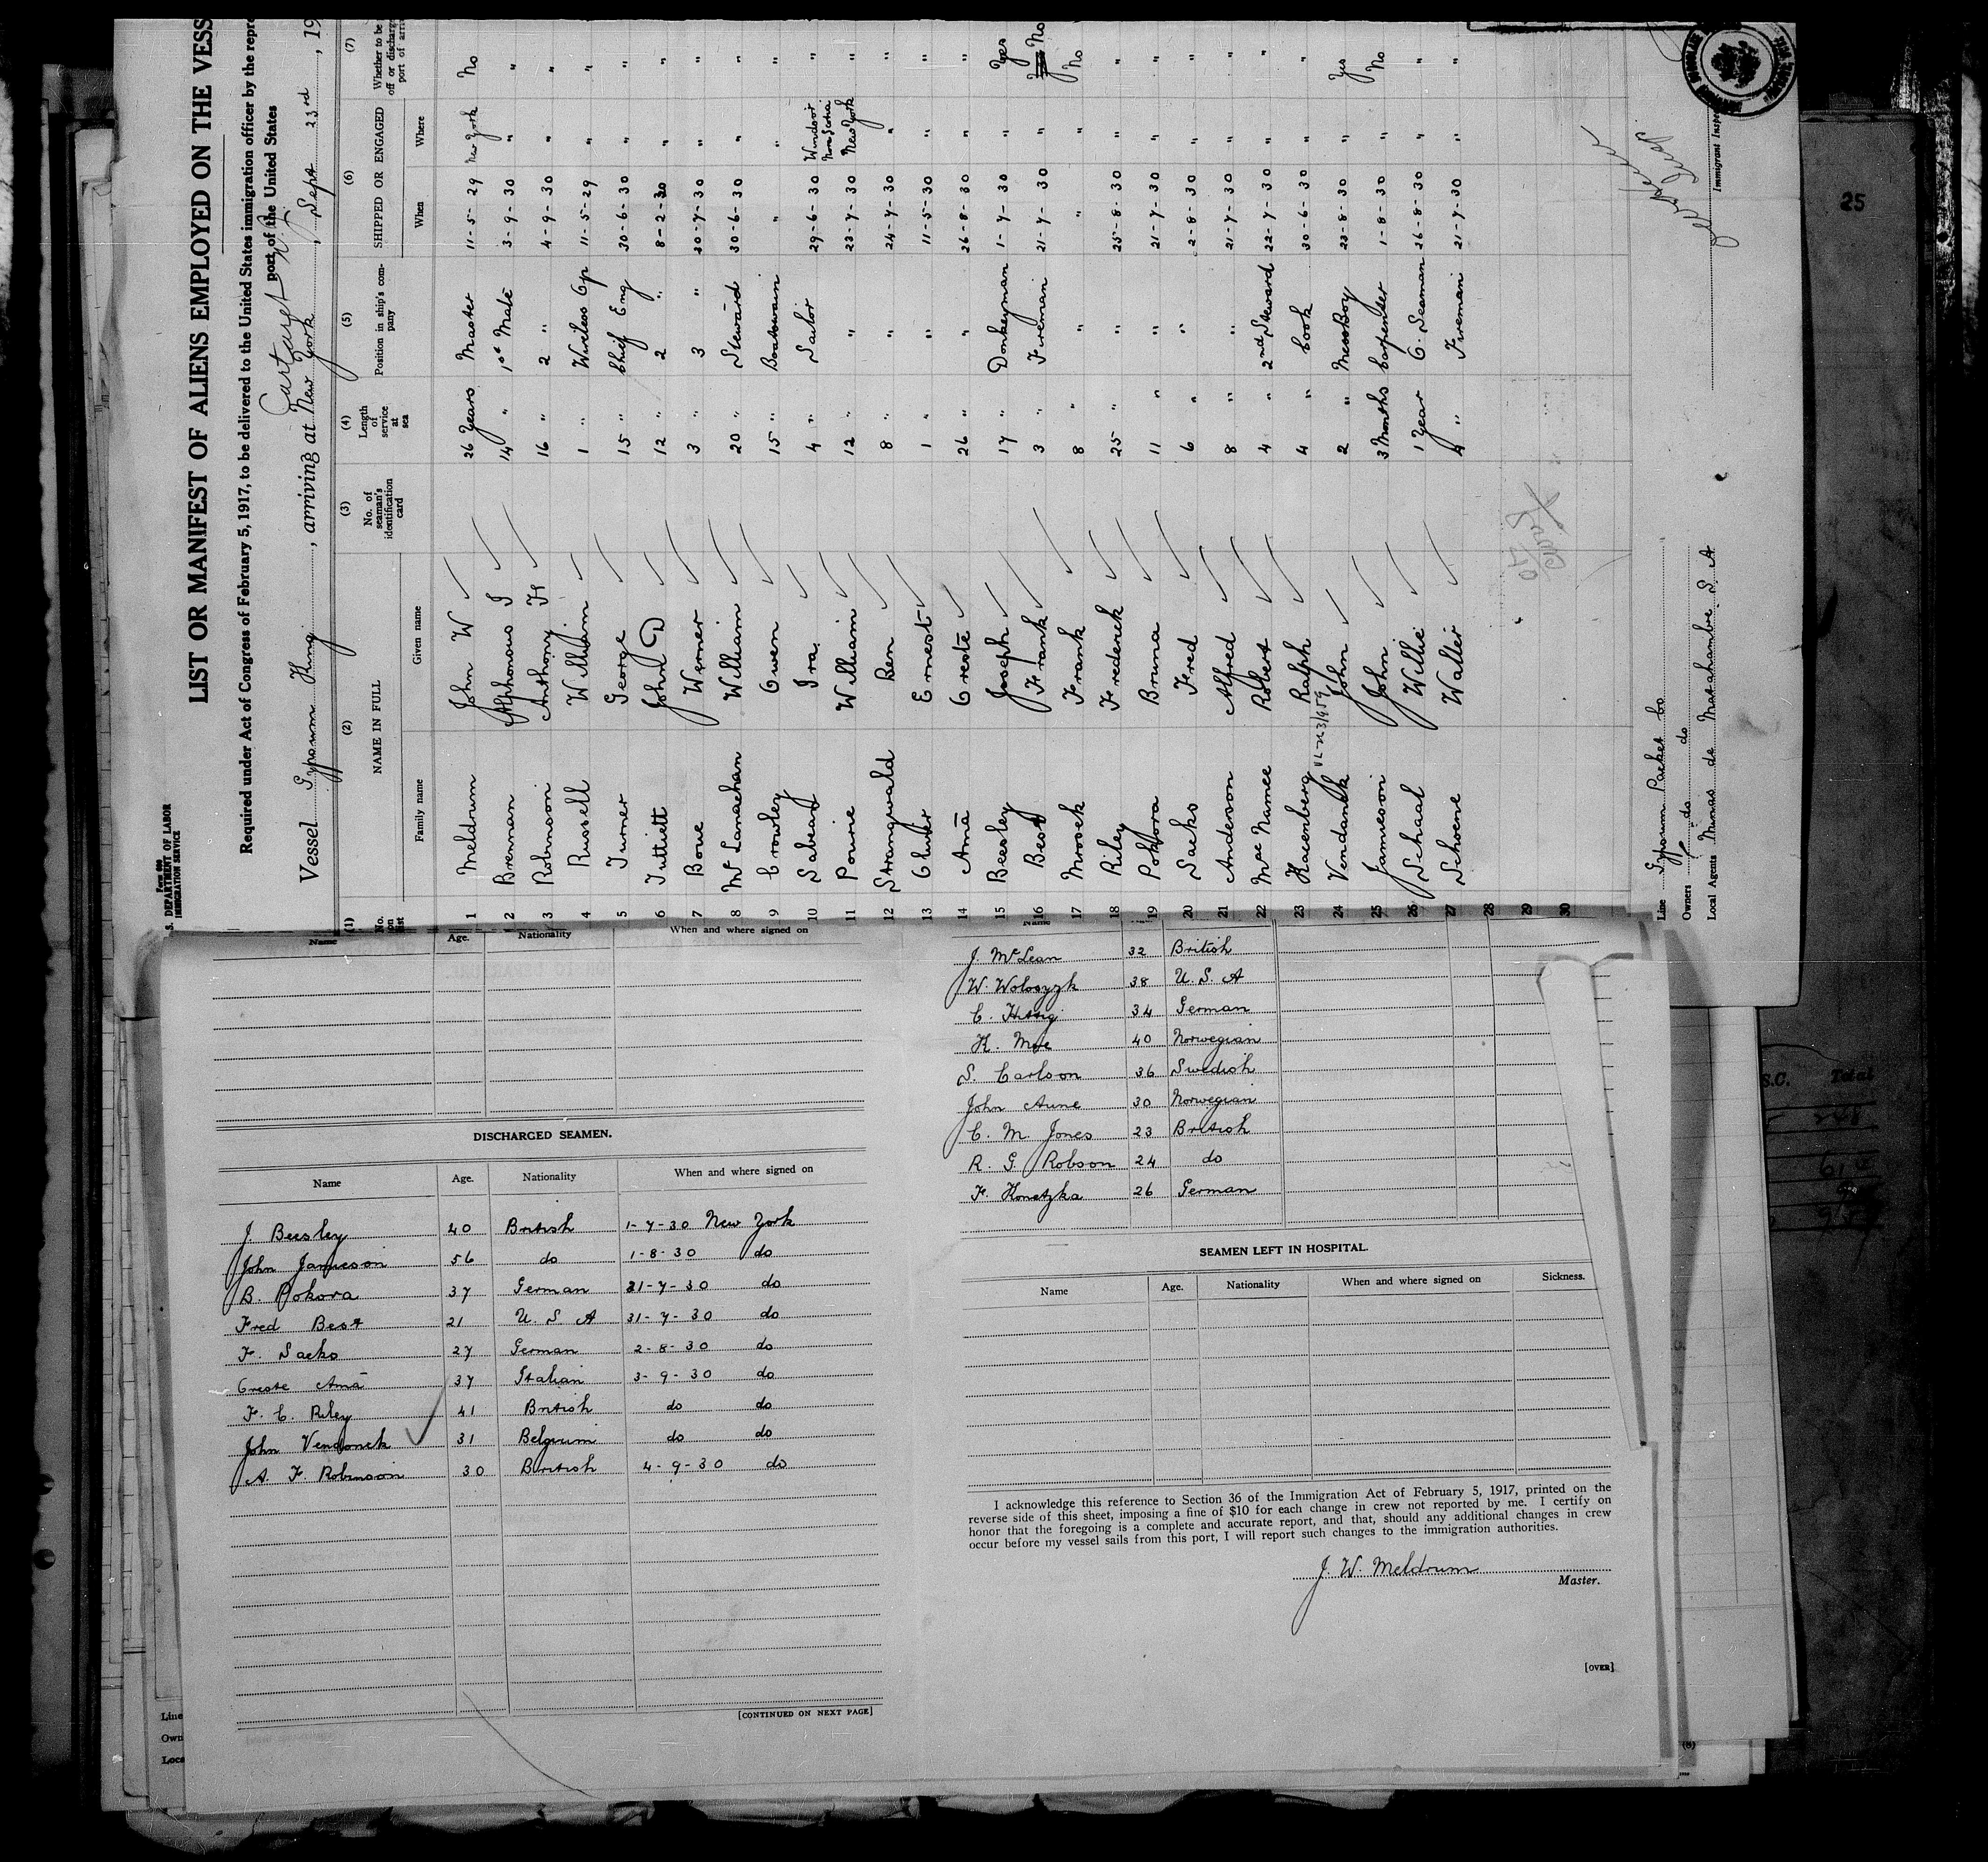 Form 689
S. DEPARTMENT OF LABOR
IMMIGRATION SERVICE
LIST OR MANIFEST OF ALIENS EMPLOYED ON THE VESS
Required under Act of Congress of February 5, 1917, to be delivered to the United States immigration officer by the repre
port of the United States
Vessel Gypsum King, arriving at New York, Sept 23rd, 19
(1) (2) (3) (4) (5) (6) (7)
No. on list NAME IN FULL No. of seaman's identification card Length of service at sea Position in ship's company SHIPPED OR ENGAGED Whether to be off or discharg port of arri
Family name Given name When Where
1 Meldrum John W 26 Years Master 11-5-29 New York No
2 Brennan Alphonous I 14 " 1st Mate 3-9-30 " "
3 Robinson Anthony F 16 " 2 " 4-9-30 " "
4 Russell William 1 " Wireless Op 11-5-29 " "
5 Turner George 15 " Chief Eng 30-6-30 " "
6 Tuttiett John D 12 " 2 " 8-2-30 " "
7 Bowe Werner 3 " 3 " 30-7-30 " "
8 Mc Lanachan William 20 " Steward 30-6-30 " "
9 Crowley Owen 15 " Boatswain " " "
10 Sabeans Ira 4 " Sailor 29-6-30 Windsor Nova Scotia "
11 Pourie William 12 " " 23-7-30 New York "
12 Strangwald Ben 8 " " 24-7-30 " "
13 Oluver Ernest 1 " " 11-5-30 " "
14 Amā Oreste 26 " " 26-8-30 " "
15 Beesley Joseph 17 " Donkeyman 1-7-30 " Yes
16 Best Frank 3 " Fireman 21-7-30 " No
17 Mrosek Frank 8 " " " " No
18 Riley Frederick 25 " " 25-8-30 " "
19 Pokora Bruna 11 " " 21-7-30 " "
20 Saeks Fred 6 " " 2-8-30 " "
21 Anderson Alfred 8 " " 21-7-30 " "
22 Mac Namee Robert 4 " 2nd Steward 22-7-30 " "
23 Hasenberg Ralph 4 " Cook 30-6-30 " "
24 Vendanck John 2 " MessBoy 23-8-30 " Yes
25 Jamieson John 3 Months Carpenter 1-8-30 " No
26 Schaal Willie 1 Year O. Seaman 26-8-30 " "
27 Schoene Walter 4 " Fireman 21-7-30 " "
28
29
30
Line Gypsum Packet Co
Owners do do
Local Agents Minas de Matahambre S A
Immigrant Inspe
25
Name Age. Nationality When and where signed on
DISCHARGED SEAMEN.
Name Age. Nationality When and where signed on
J. Beesley 40 British 1-7-30 New York
John Jamieson 56 do 1-8-30 do
B. Pokora 37 German 21-7-30 do
Fred Best 21 U. S A 21-7-30 do
F. Saeks 27 German 2-8-30 do
Oreste Amā 37 Italian 3-9-30 do
F. C. Riley 41 British do do
John Vendonck 31 Belgium do do
A. F. Robinson 30 British 4-9-30 do
[CONTINUED ON NEXT PAGE]
J. McLean 32 British
W. Woloszyk 38 U. S. A
C. 34 German
K. Moe 40 Norwegian
S. Carlson 36 Swedish
John Aune 30 Norwegian
C. M. Jones 23 British
R. G. Robson 24 do
F. Konetzka 26 German
SEAMEN LEFT IN HOSPITAL.
Name Age. Nationality When and where signed on Sickness.
I acknowledge this reference to Section 36 of the Immigration Act of February 5, 1917, printed on the
reverse side of this sheet, imposing a fine of $10 for each change in crew not reported by me. I certify on
honor that the foregoing is a complete and accurate report, and that, should any additional changes in crew
occur before my vessel sails from this port, I will report such changes to the immigration authorities.
J. W. Meldrum
Master.
[OVER]
S.C. Total
Line
Own
Loca
(8)